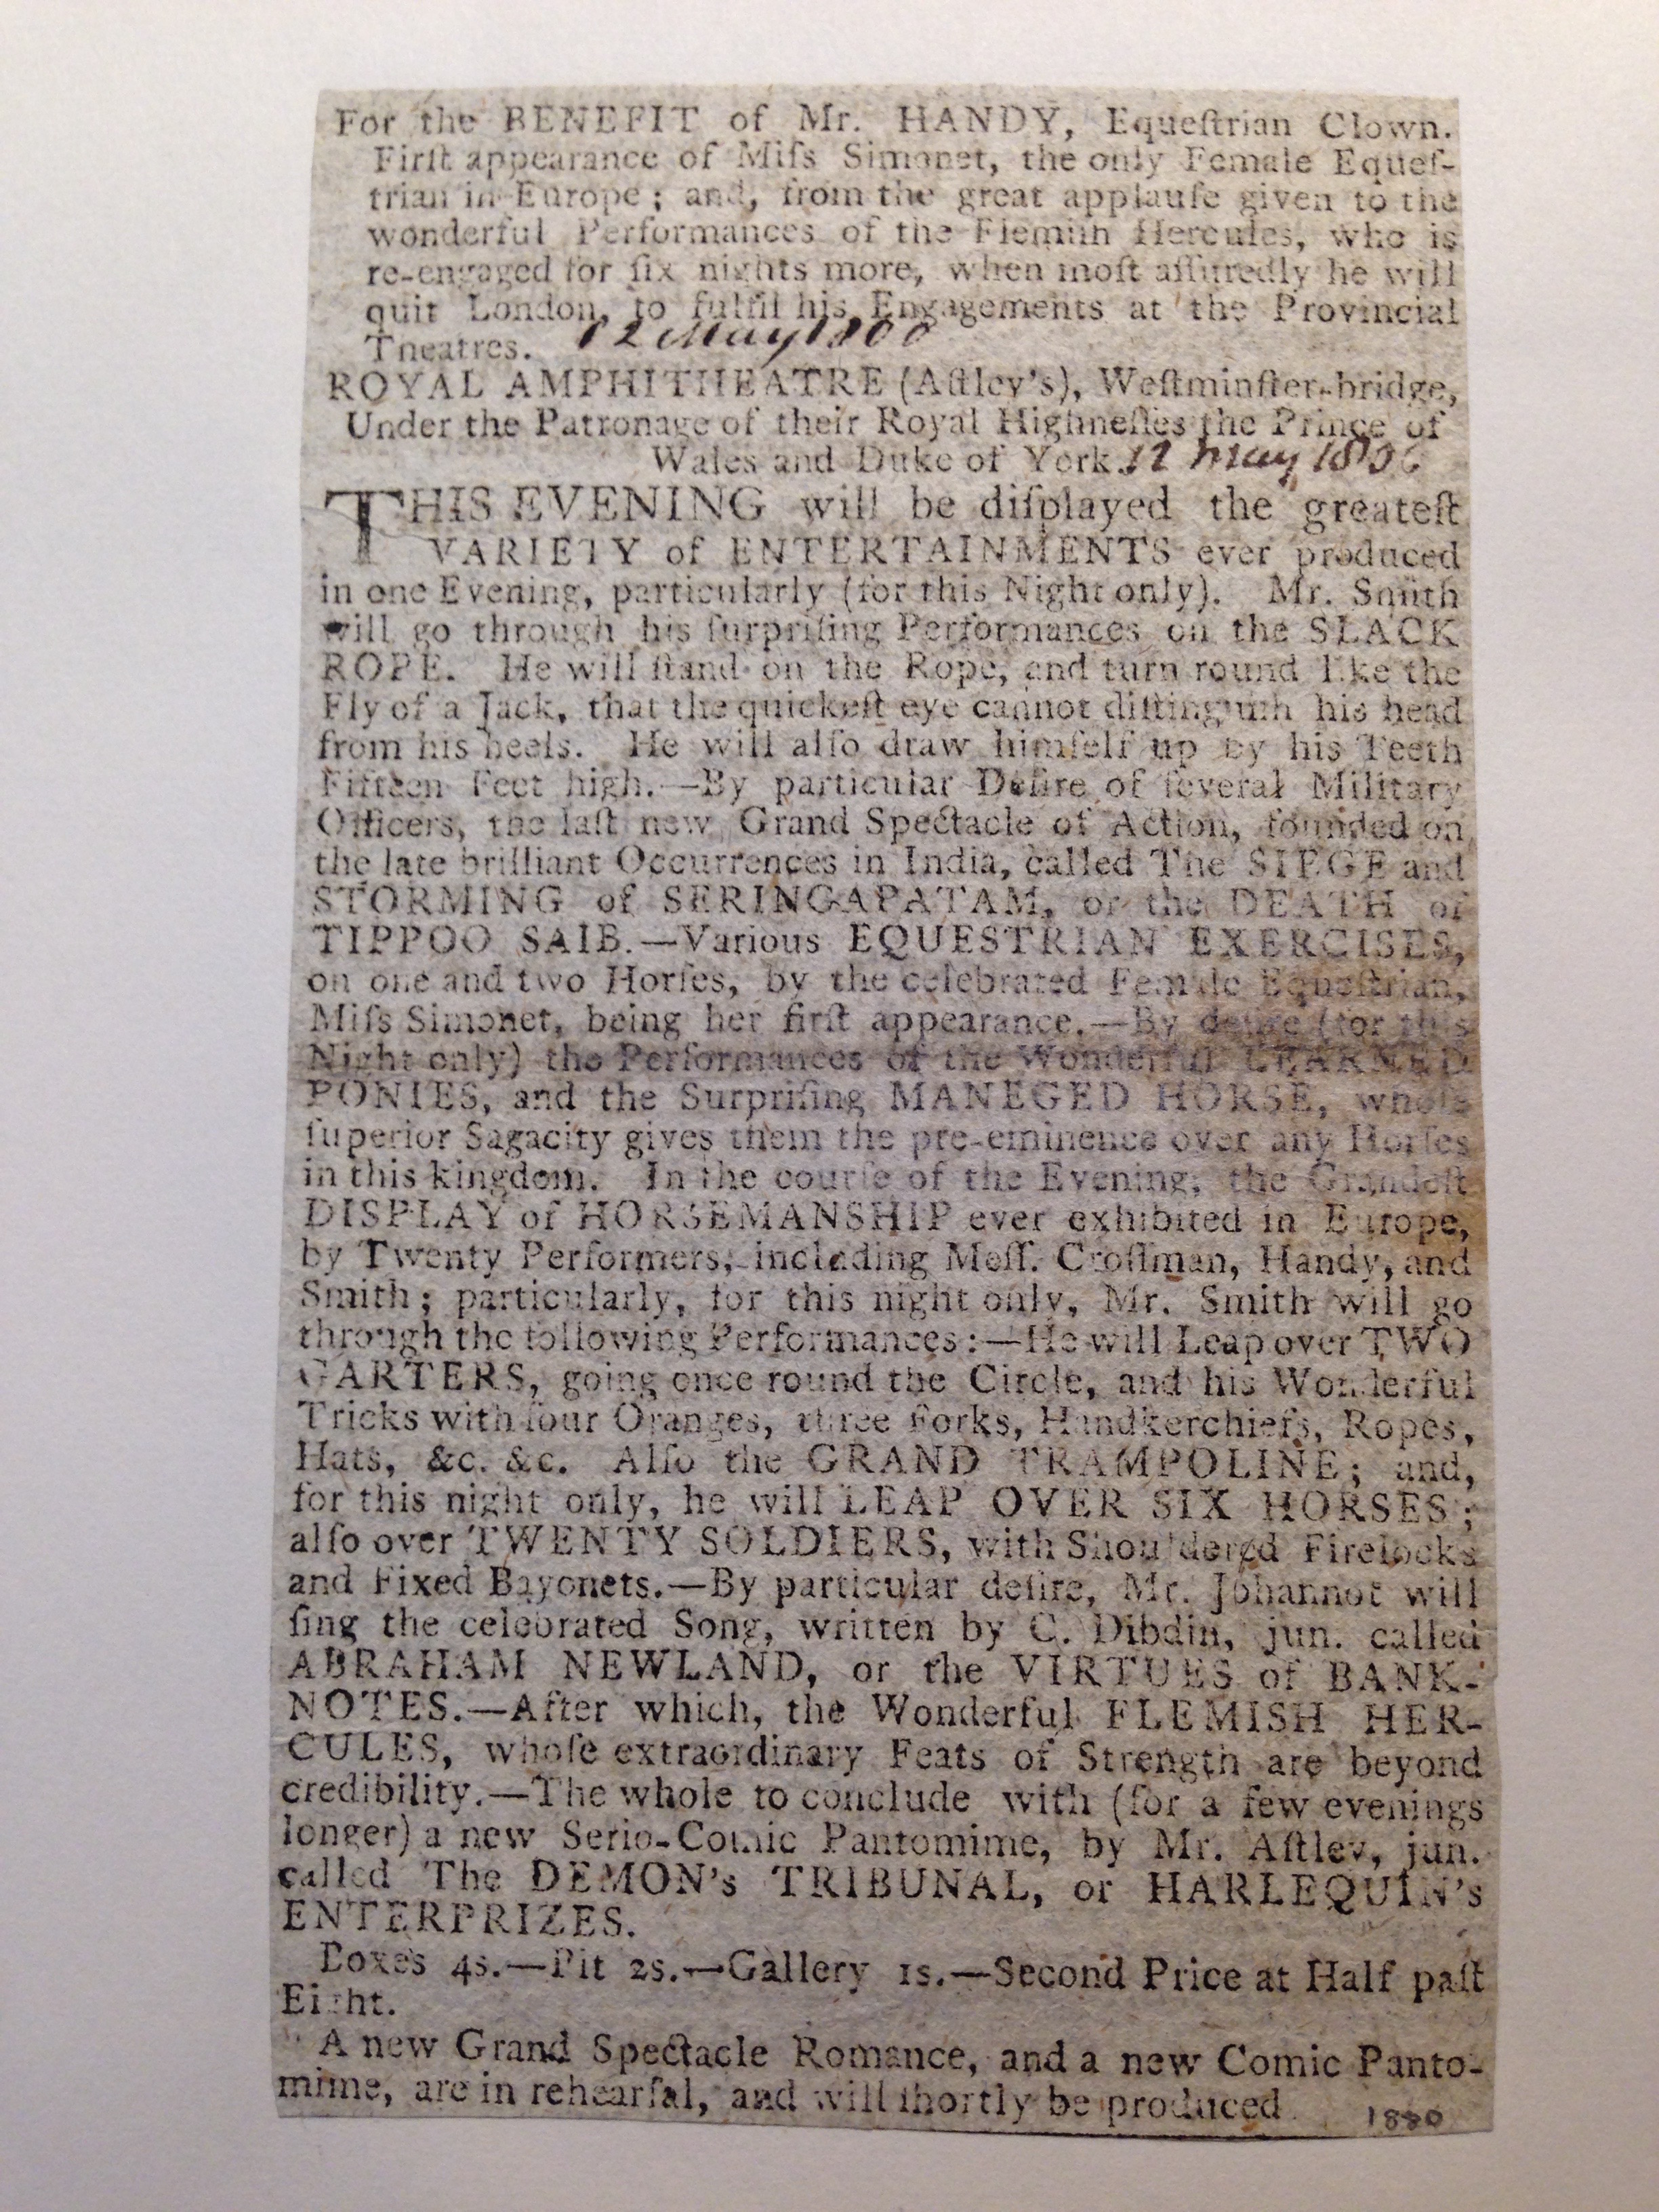 For the BENEFIT of Mr. HANDY, Equeſtrian Clown.
Firſt appearance of Miſs Simonet, the only Female Equeſ-
trian in Europe; and, from the great applauſe given to the
wonderful Performances of the Flemiſh Hercules, who is
re-engaged for ſix nights more, when moſt aſſuredly he will
quit London, to fulfil his Engagements at the Provincial
Theatres. 12 May 1800
ROYAL AMPHITHEATRE (Aſtley's), Weſtminſter-bridge,
Under the Patronage of their Royal Highneſſes the Prince of
Wales and Duke of York. 12 May 1800
THIS EVENING will be diſplayed the greateſt
VARIETY of ENTERTAINMENTS ever produced
in one Evening, particularly (for this Night only). Mr. Smith
will go through his ſurpriſing Performances on the SLACK
ROPE. He will ſtand on the Rope, and turn round like the
Fly of a Jack, that the quickeſt eye cannot diſtinguiſh his head
from his heels. He will alſo draw himſelf up by his Teeth
Fifteen Feet high.—By particular Deſire of ſeveral Military
Officers, the laſt new Grand Spectacle of Action, founded on
the late brilliant Occurrences in India, called The SIEGE and
STORMING of SERINGAPATAM, or the DEATH of
TIPPOO SAIB.—Various EQUESTRIAN EXERCISES,
on one and two Horſes, by the celebrated Female Equeſtrian,
Miſs Simonet, being her firſt appearance.—By deſire (for this
Night only) the Performances of the Wonderful LEARNED
PONIES, and the Surpriſing MANEGED HORSE, whoſe
ſuperior Sagacity gives them the pre-eminence over any Horſes
in this kingdom. In the courſe of the Evening, the Grandeſt
DISPLAY of HORSEMANSHIP ever exhibited in Europe,
by Twenty Performers, including Meſſ. Croſſman, Handy, and
Smith; particularly, for this night only, Mr. Smith will go
through the following Performances:—He will Leap over TWO
GARTERS, going once round the Circle, and his Wonderful
Tricks with four Oranges, three Forks, Handkerchiefs, Ropes,
Hats, &c. &c. Alſo the GRAND TRAMPOLINE; and,
for this night only, he will LEAP OVER SIX HORSES;
alſo over TWENTY SOLDIERS, with Shouldered Firelocks
and Fixed Bayonets.—By particular deſire, Mr. Johannot will
ſing the celebrated Song, written by C. Dibdin, jun. called
ABRAHAM NEWLAND, or the VIRTUES of BANK-
NOTES.—After which, the Wonderful FLEMISH HER-
CULES, whoſe extraordinary Feats of Strength are beyond
credibility.—The whole to conclude with (for a few evenings
longer) a new Serio-Comic Pantomime, by Mr. Aſtley, jun.
called The DEMON's TRIBUNAL, or HARLEQUIN's
ENTERPRIZES.
Boxes 4s.—Pit 2s.—Gallery 1s.—Second Price at Half paſt
Eight.
A new Grand Spectacle Romance, and a new Comic Panto-
mime, are in rehearſal, and will ſhortly be produced.